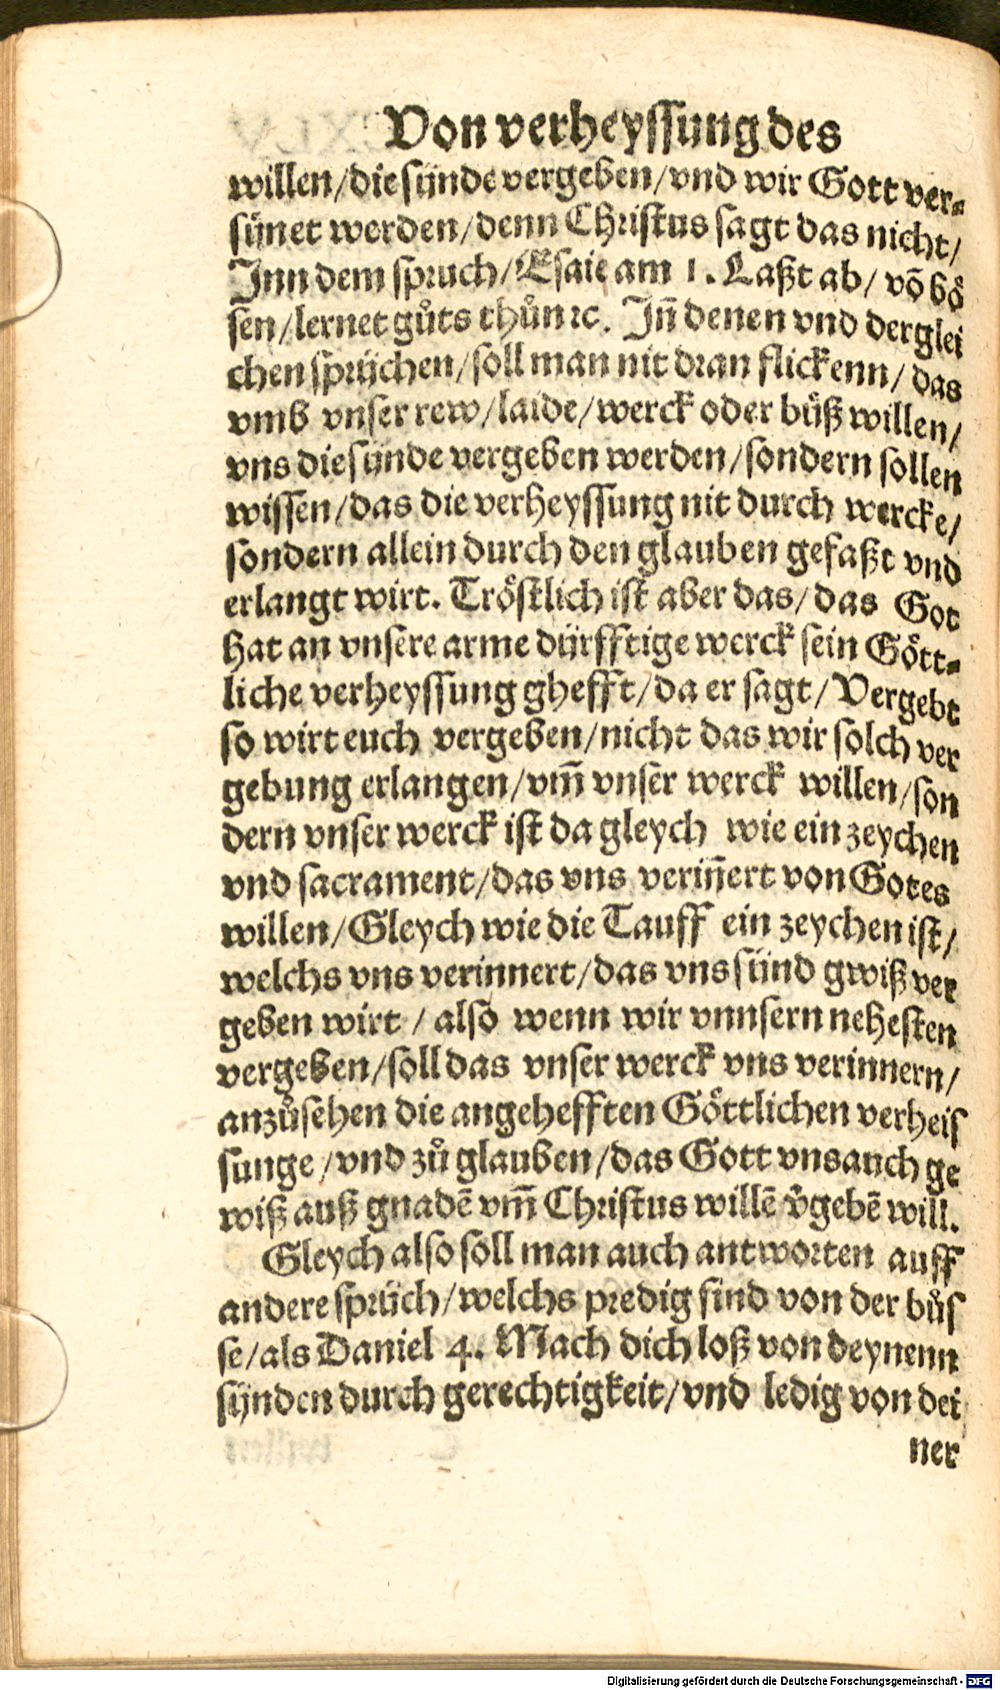 Von verheyssung des
willen/die sünde vergeben/vnd wir Gott ver⸗
sünet werden/denn Christus sagt das nicht/
Jnn dem spruch/Esaie am 1. Laßt ab/ võ bö
sen/lernet gůts thůn ꝛc. Jñ denen vnd derglei
chen sprüchen/soll man nit dran flickenn/ das
vmb vnser rew/laide/werck oder bůß willen/
vns die sünde vergeben werden/sondern sollen
wissen/das die verheyssung nit durch wercke/
sondern allein durch den glauben gefaßt vnd
erlangt wirt. Tröstlich ist aber das/das Got
hat an vnsere arme dürfftige werck sein Gött⸗
liche verheyssung ghefft/da er sagt/Vergebt
so wirt euch vergeben/nicht das wir solch ver
gebung erlangen/vm̃ vnser werck willen/son
dern vnser werck ist da gleych wie ein zeychen
vnd sacrament/das vns veriñert von Gotes
willen/Gleych wie die Tauff ein zeychen ist/
welchs vns verinnert/das vns sünd gwiß ver
geben wirt / also wenn wir vnnsern nehesten
vergeben/soll das vnser werck vns verinnern/
anzůsehen die angehefften Göttlichen verheis
sunge/vnd zů glauben/das Gott vns auch ge
wiß auß gnadẽ vm̃ Christus willẽ v̂gebẽ will.
Gleych also soll man auch antworten auff
andere sprüch/welchs predig sind von der bůs
se/als Daniel 4. Mach dich loß von deynenn
sünden durch gerechtigkeit/vnd ledig von dei
ner
Digitalisierung gefördert durch die Deutsche Forschungsgemeinschaft - DFG